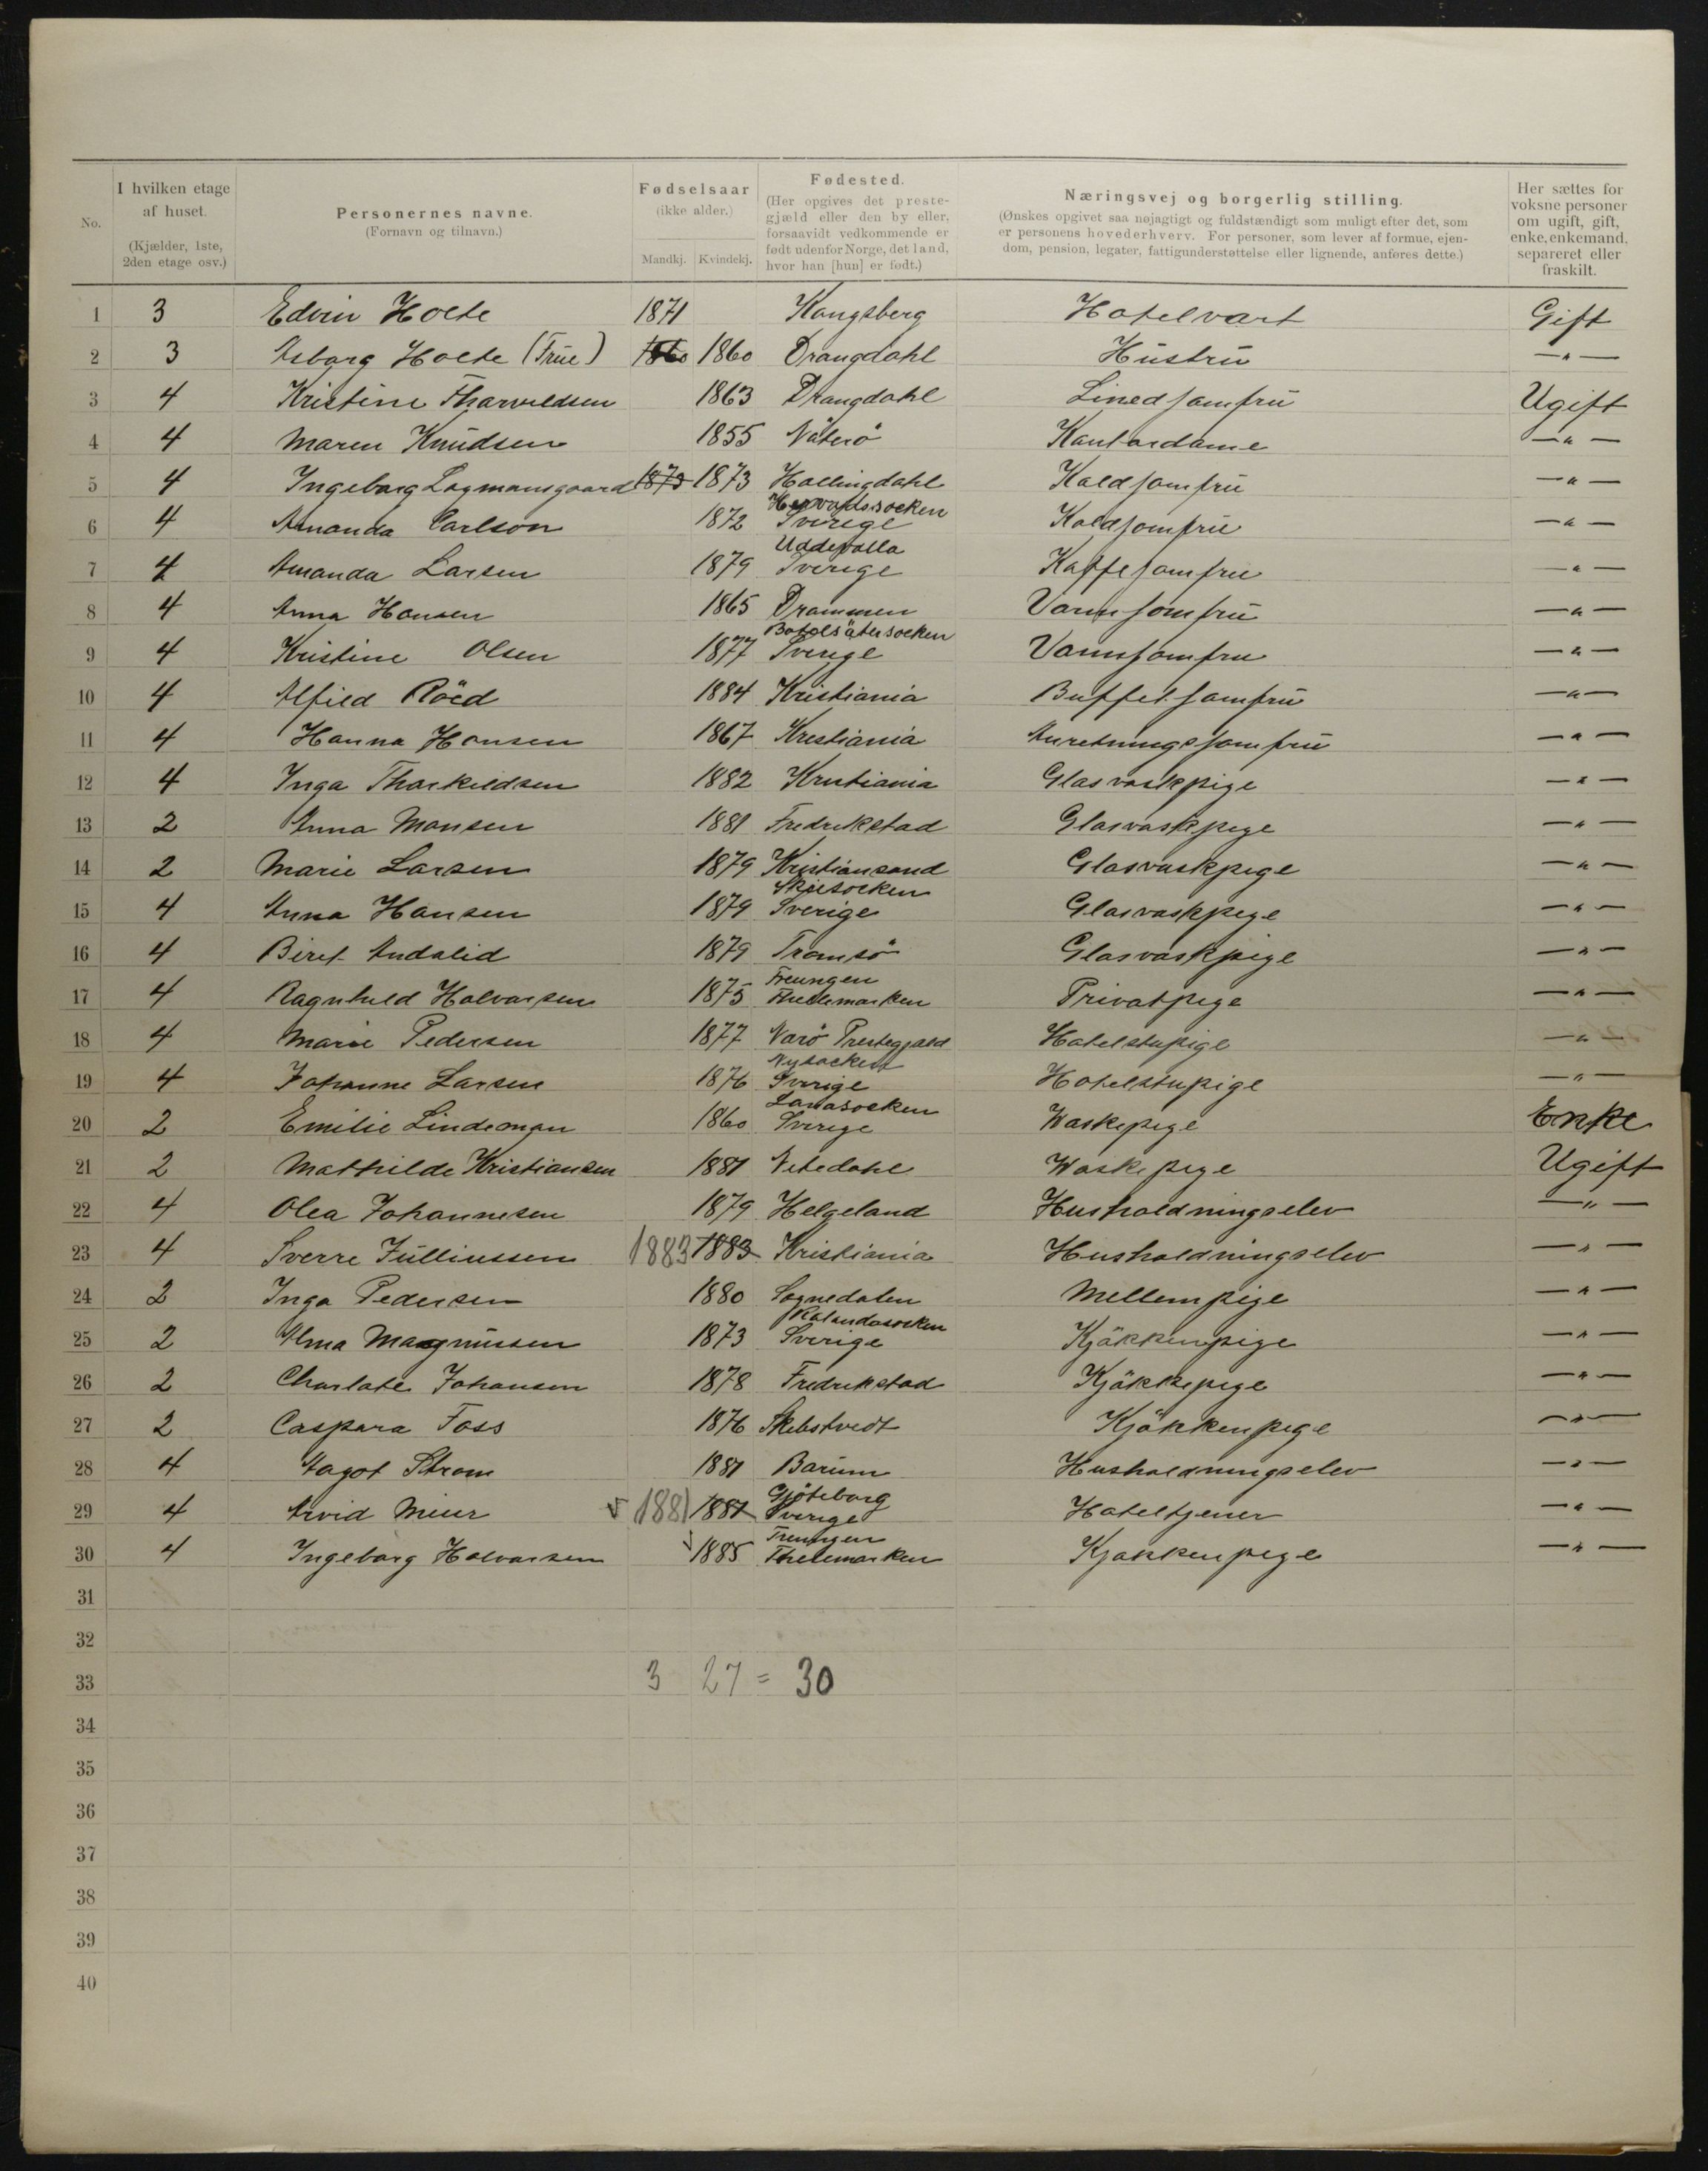 No.
I hvilken etage af huset. (Kjælder, 1ste, 2den etage osv.)
Personernes navne. (Fornavn og tilnavn.)
Fødselsaar (ikke alder.) Mandkj. Kvindekj.
Fødested. (Her opgives det prestegjæld eller den by eller, forsaavidt vedkommende er født udenfor Norge, det land, hvor han [hun] er født.)
Næringsvej og borgerlig stilling. (Ønskes opgivet saa nøjagtigt og fuldstændigt som muligt efter det, som er personens hovederhverv. For personer, som lever af formue, ejendom, pension, legater, fattigunderstøttelse eller lignende, anføres dette.)
Her sættes for voksne personer om ugift, gift, enke, enkemand, separeret eller fraskilt.
1 3 Edvin Holte 1871 Kongsberg Hotelvært Gift
2 3 Asborg Holte (Frue) 1860 1860 Drangdahl Hustru —"—
3 4 Kristine Tharvildsen 1863 Drangdahl Linedjomfru Ugift
4 4 Maren Knudsen 1855 Nøterö Kontordame —"—
5 4 Ingeborg Lagmansgaard 1873 1873 Hallingdahl Koldjomfru —"—
6 4 Amanda Carlson 1872 Sverige Koldjomfru —"—
7 4 Amanda Larsen 1879 Uddevalla Sverige Kaffejomfru —"—
8 4 Anna Hansen 1865 Drammen Varmjomfru —"—
9 4 Kristine Olsen 1877 Botolsätersocken Sverige Varmjomfru —"—
10 4 Alfild Röed 1884 Kristiania Buffetjomfru —"—
11 4 Hanna Hansen 1867 Kristiania Anretningsjomfru —"—
12 4 Inga Tharkildsen 1882 Kristiania Glasvaskpige —"—
13 2 Anna Monsen 1881 Fredrikstad Glasvaskpige —"—
14 2 Marie Larsen 1879 Kristiansand Glasvaskpige —"—
15 4 Anna Hansen 1879 Skeesocken Sverige Glasvaskpige —"—
16 4 Biret Andalid 1879 Tromsö Glasvaskpige —"—
17 4 Ragnhild Halvorsen 1875 Treungen Thelemarken Privatpige —"—
18 4 Marie Pedersen 1877 Narö Prestegjæld Hotelstupige —"—
19 4 Johanne Larsen 1876 Nysocken Sverige Hotelstupige —"—
20 2 Emilie Lindeman 1860 Lanasocken Sverige Waskepige Enke
21 2 Mathilde Kristiansen 1881 Nitedahl Waskepige Ugift
22 4 Olea Johannesen 1879 Helgeland Husholdningselev —"—
23 4 Sverre Julliussen 1883 1883 Kristiania Husholdningselev —"—
24 2 Inga Pedersen 1880 Sognedalen Mellempige —"—
25 2 Alma Magnussen 1873 Kalandasocken Sverige Kjökkenpige —"—
26 2 Charlote Johansen 1878 Fredrikstad Kjökkepige —"—
27 2 Caspara Foss 1876 Skebstvedt Kjökkenpige —"—
28 4 Aagot Strom 1881 Barum Husholdningselev —"—
29 4 Arvid Meier 1881 1881 Gjöteborg Sverige Hoteltjener —"—
30 4 Ingeborg Halvorsen 1885 Treungen Thelemarken Kjøkkenpige —"—
31
32
33 3 27 = 30
34
35
36
37
38
39
40